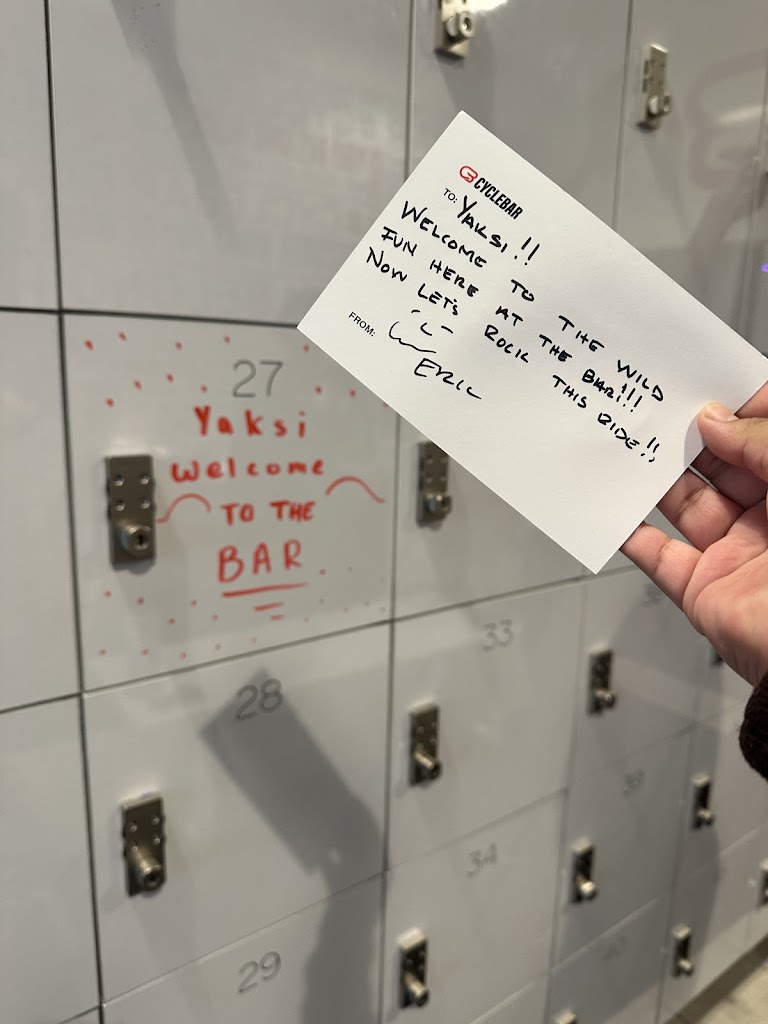 CYCLEBAR
TO: YAKSI!!
WELCOME TO THE WILD
FUN HERE AT THE BAR!!!
NOW LET'S ROCK THIS RIDE!!
FROM:
ERIC
27
Yaksi
welcome
TO THE
BAR
28
33
29
34